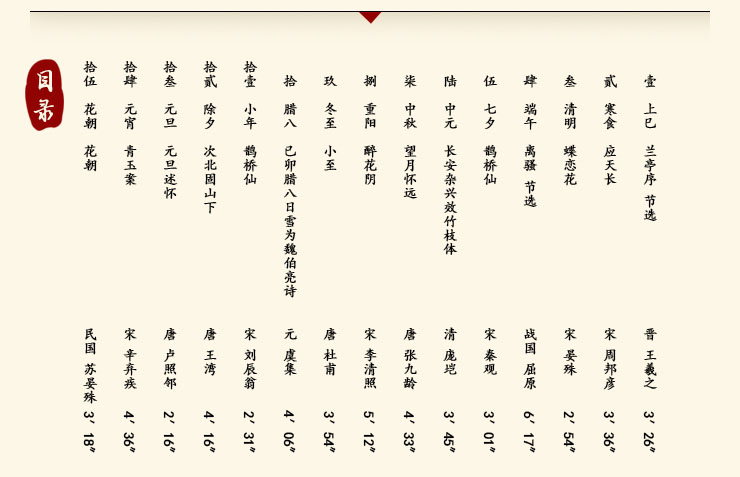 目录
壹 上巳 兰亭序 节选 晋 王羲之 3′26″
贰 寒食 应天长 宋 周邦彦 3′36″
叁 清明 蝶恋花 宋 晏殊 2′54″
肆 端午 离骚 节选 战国 屈原 6′17″
伍 七夕 鹊桥仙 宋 秦观 3′01″
陆 中元 长安杂兴效竹枝体 清 庞垲 3′45″
柒 中秋 望月怀远 唐 张九龄 4′33″
捌 重阳 醉花阴 宋 李清照 5′12″
玖 冬至 小至 唐 杜甫 3′54″
拾 腊八 己卯腊八日雪为魏伯亮诗 元 虞集 4′06″
拾壹 小年 鹊桥仙 宋 刘辰翁 2′31″
拾贰 除夕 次北固山下 唐 王湾 4′16″
拾叁 元旦 元旦述怀 唐 卢照邻 2′16″
拾肆 元宵 青玉案 宋 辛弃疾 4′36″
拾伍 花朝 花朝 民国 苏晏殊 3′18″